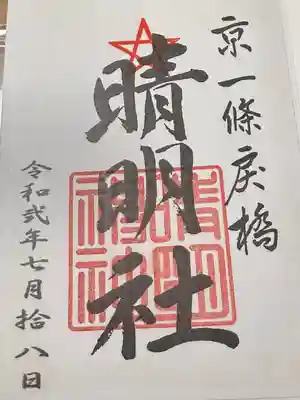 京一條戻橋
晴明社
晴明神社
令和弐年七月拾八日